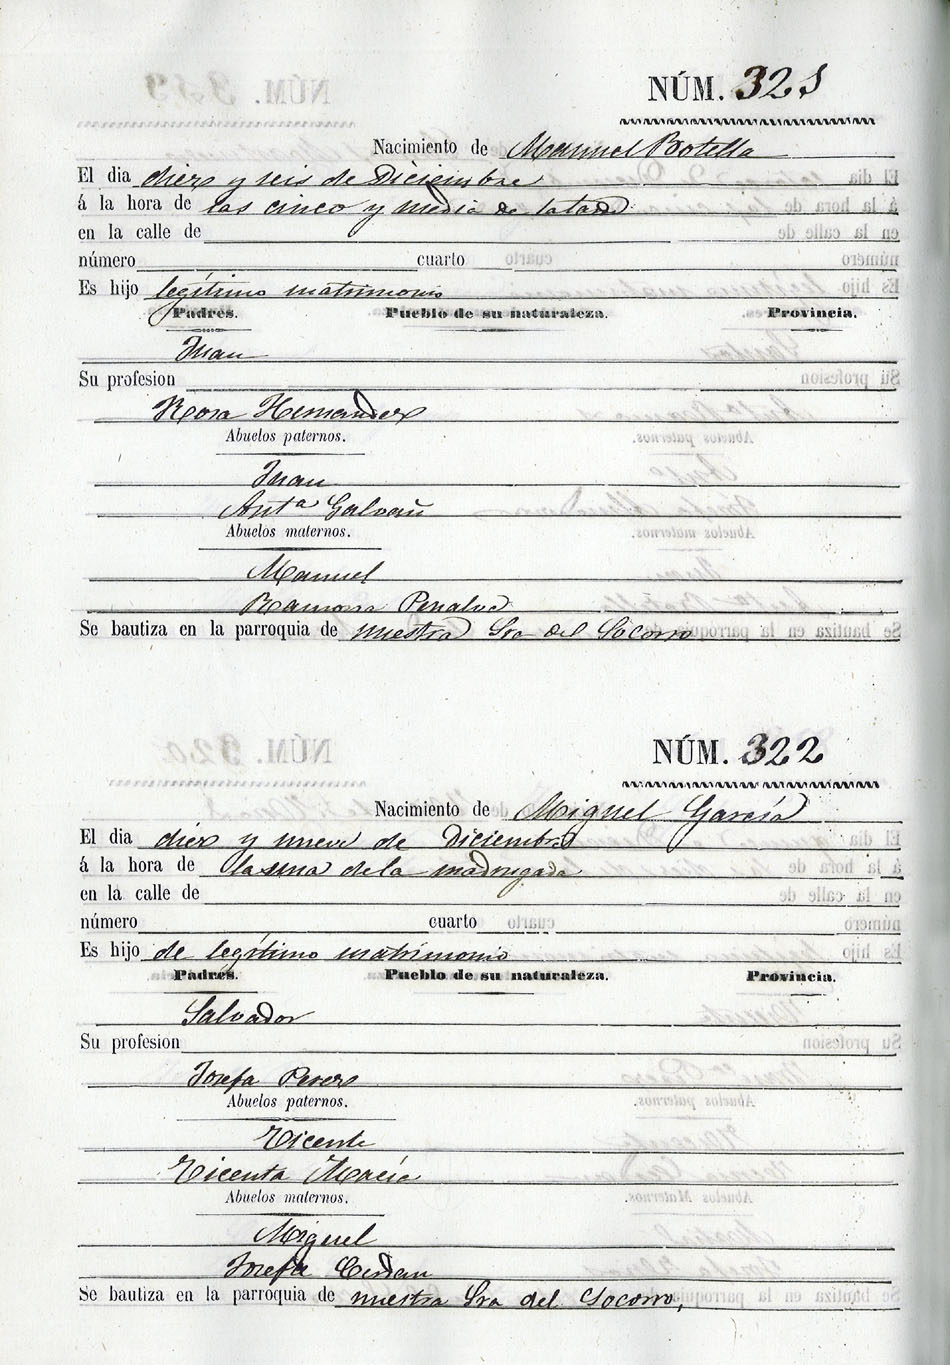 NÚM. 321
Nacimiento de Manuel Botella
El dia diez y seis de Diciembre
á la hora de las cinco y media de la tarde
en la calle de
número cuarto
Es hijo legítimo matrimonio
Padres. Pueblo de su naturaleza. Provincia.
Juan
Su profesion
Rosa Hernandez
Abuelos paternos.
Juan
Antª Galvañ
Abuelos maternos.
Manuel
Ramona Penalva
Se bautiza en la parroquia de nuestra Sra del Socorro
NÚM. 322
Nacimiento de Miguel García
El dia diez y nueve de Diciembre
á la hora de la una de la madrugada
en la calle de
número cuarto
Es hijo de legítimo matrimonio
Padres. Pueblo de su naturaleza. Provincia.
Salvador
Su profesion
Josefa Perez
Abuelos paternos.
Vicente
Vicenta Macía
Abuelos maternos.
Miguel
Josefa Cerdan
Se bautiza en la parroquia de nuestra Sra del Socorro,